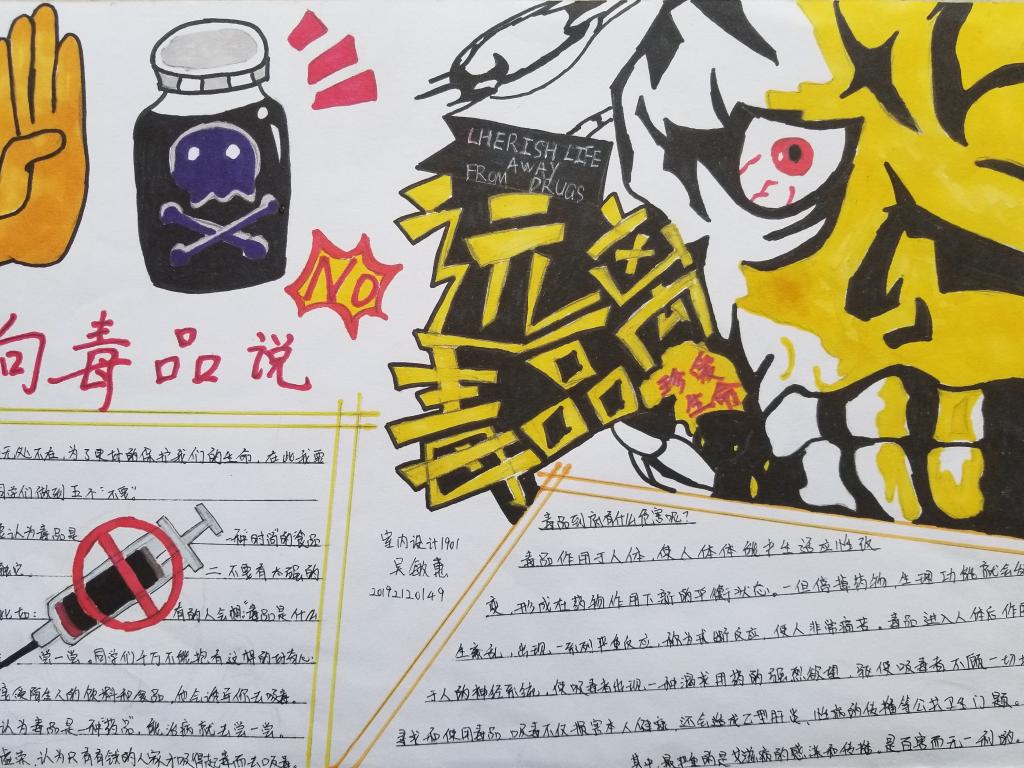 LHERISH LIFE
AWAY
FROM DRUGS
NO
远离
毒品
珍爱
生命
向毒品说
无处不在,为了更好的保护我们的生命,在此我要
同学们做到五个"不要"
要认为毒品是 一种时尚的食品
二不要有太强的
比如: 有的人会想:"毒品是什么
尝一尝。同学们千万不能抱有这样的好奇心
陌生人的饮料和食品,他会诱导你去吸毒。
认为毒品是一种药品",能治病就去尝一尝。
虚荣,认为只有有钱的人家才吸得起毒而去吸毒。
室内设计1901
吴敏惠
20192120149
毒品到底有什么危害呢?
毒品作用于人体,使人体体能产生适应性改
变,形成在药物作用下新的平衡状态。一但停掉药物,生理功能就会
生紊乱,出现一系列严重反应,称为戒断反应,使人非常痛苦。毒品进入人体后作用
于人的神经系统,使吸毒者出现一种渴求用药的强烈欲望,驱使吸毒者不顾一切
寻求和使用毒品 吸毒不仅损害本人健康,还会造成乙型肝炎、性病的传播等公共卫生问题。
其中最严重的是艾滋病的感染和传播,是百害而无一利的。